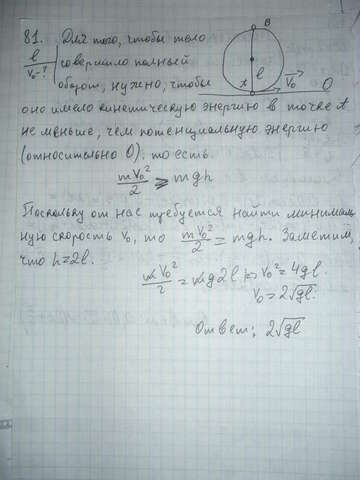 81. Для того, чтобы тело
l
совершило полный
V₀-?
оборот, нужно, чтобы
B
l
A
V₀
O
оно имело кинетическую энергию в точке A
не меньше, чем потенциальную энергию
(относительно O), то есть
mV₀²/2 ⩾ mgh
Поскольку от нас требуется найти минималь
ную скорость V₀, то mV₀²/2 = mgh. Заметим,
что h=2l.
mV₀²/2 = mg2l ⇒ V₀² = 4gl.
V₀ = 2√gl.
Ответ: 2√gl